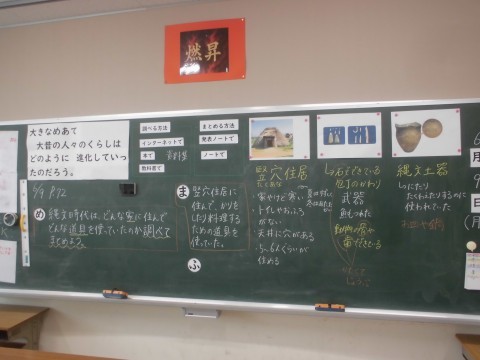 燃昇
大きなめあて
大昔の人々のくらしは
どのように 進化していっ
たのだろう。
調べる方法
インターネットで
本で
資料集
教科書で
まとめる方法
発表ノートで
ノートで
6/9 P.72
め
縄文の時代は、どんな家に住んで
どんな道具を使っていたのか調べて
まとめよう。
ま
竪穴住居に
住んで、かりを
したり料理する
ための道具を
使っていた。
ふ
竪穴住居
たてあな
・家やけど寒い
・トイレやおふろ
がない
・天井に穴がある
住める
石でできている
包丁のかわり
武器
動物の骨や
縄文土器
にたり
たくわえたりするのに
使われていた
6
月
9
日
(月